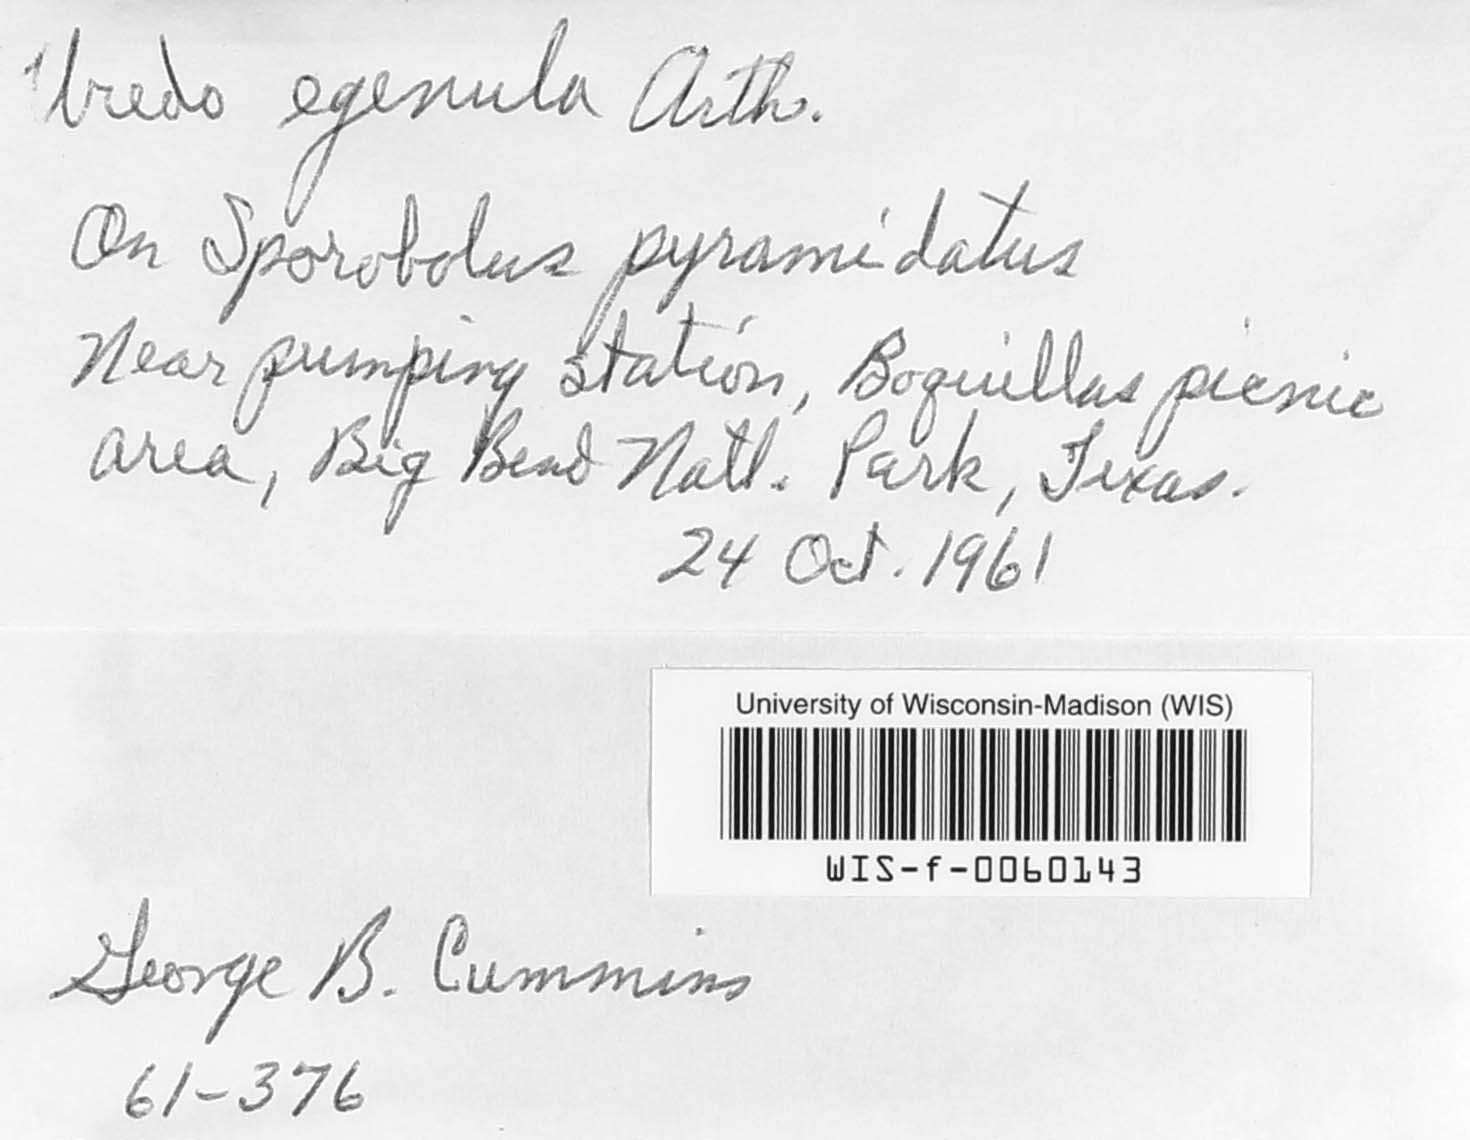 Uredo egenula Arth.
On Sporobolus pyramidatus
Near pumping station, Boquillas picnic
area, Big Bend Natl. Park, Texas.
24 Oct. 1961
University of Wisconsin-Madison (WIS)
WIS-f-0060143
George B. Cummins
61-376